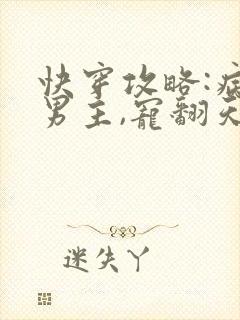 快穿攻略:病
男主,宠翻天
迷失丫